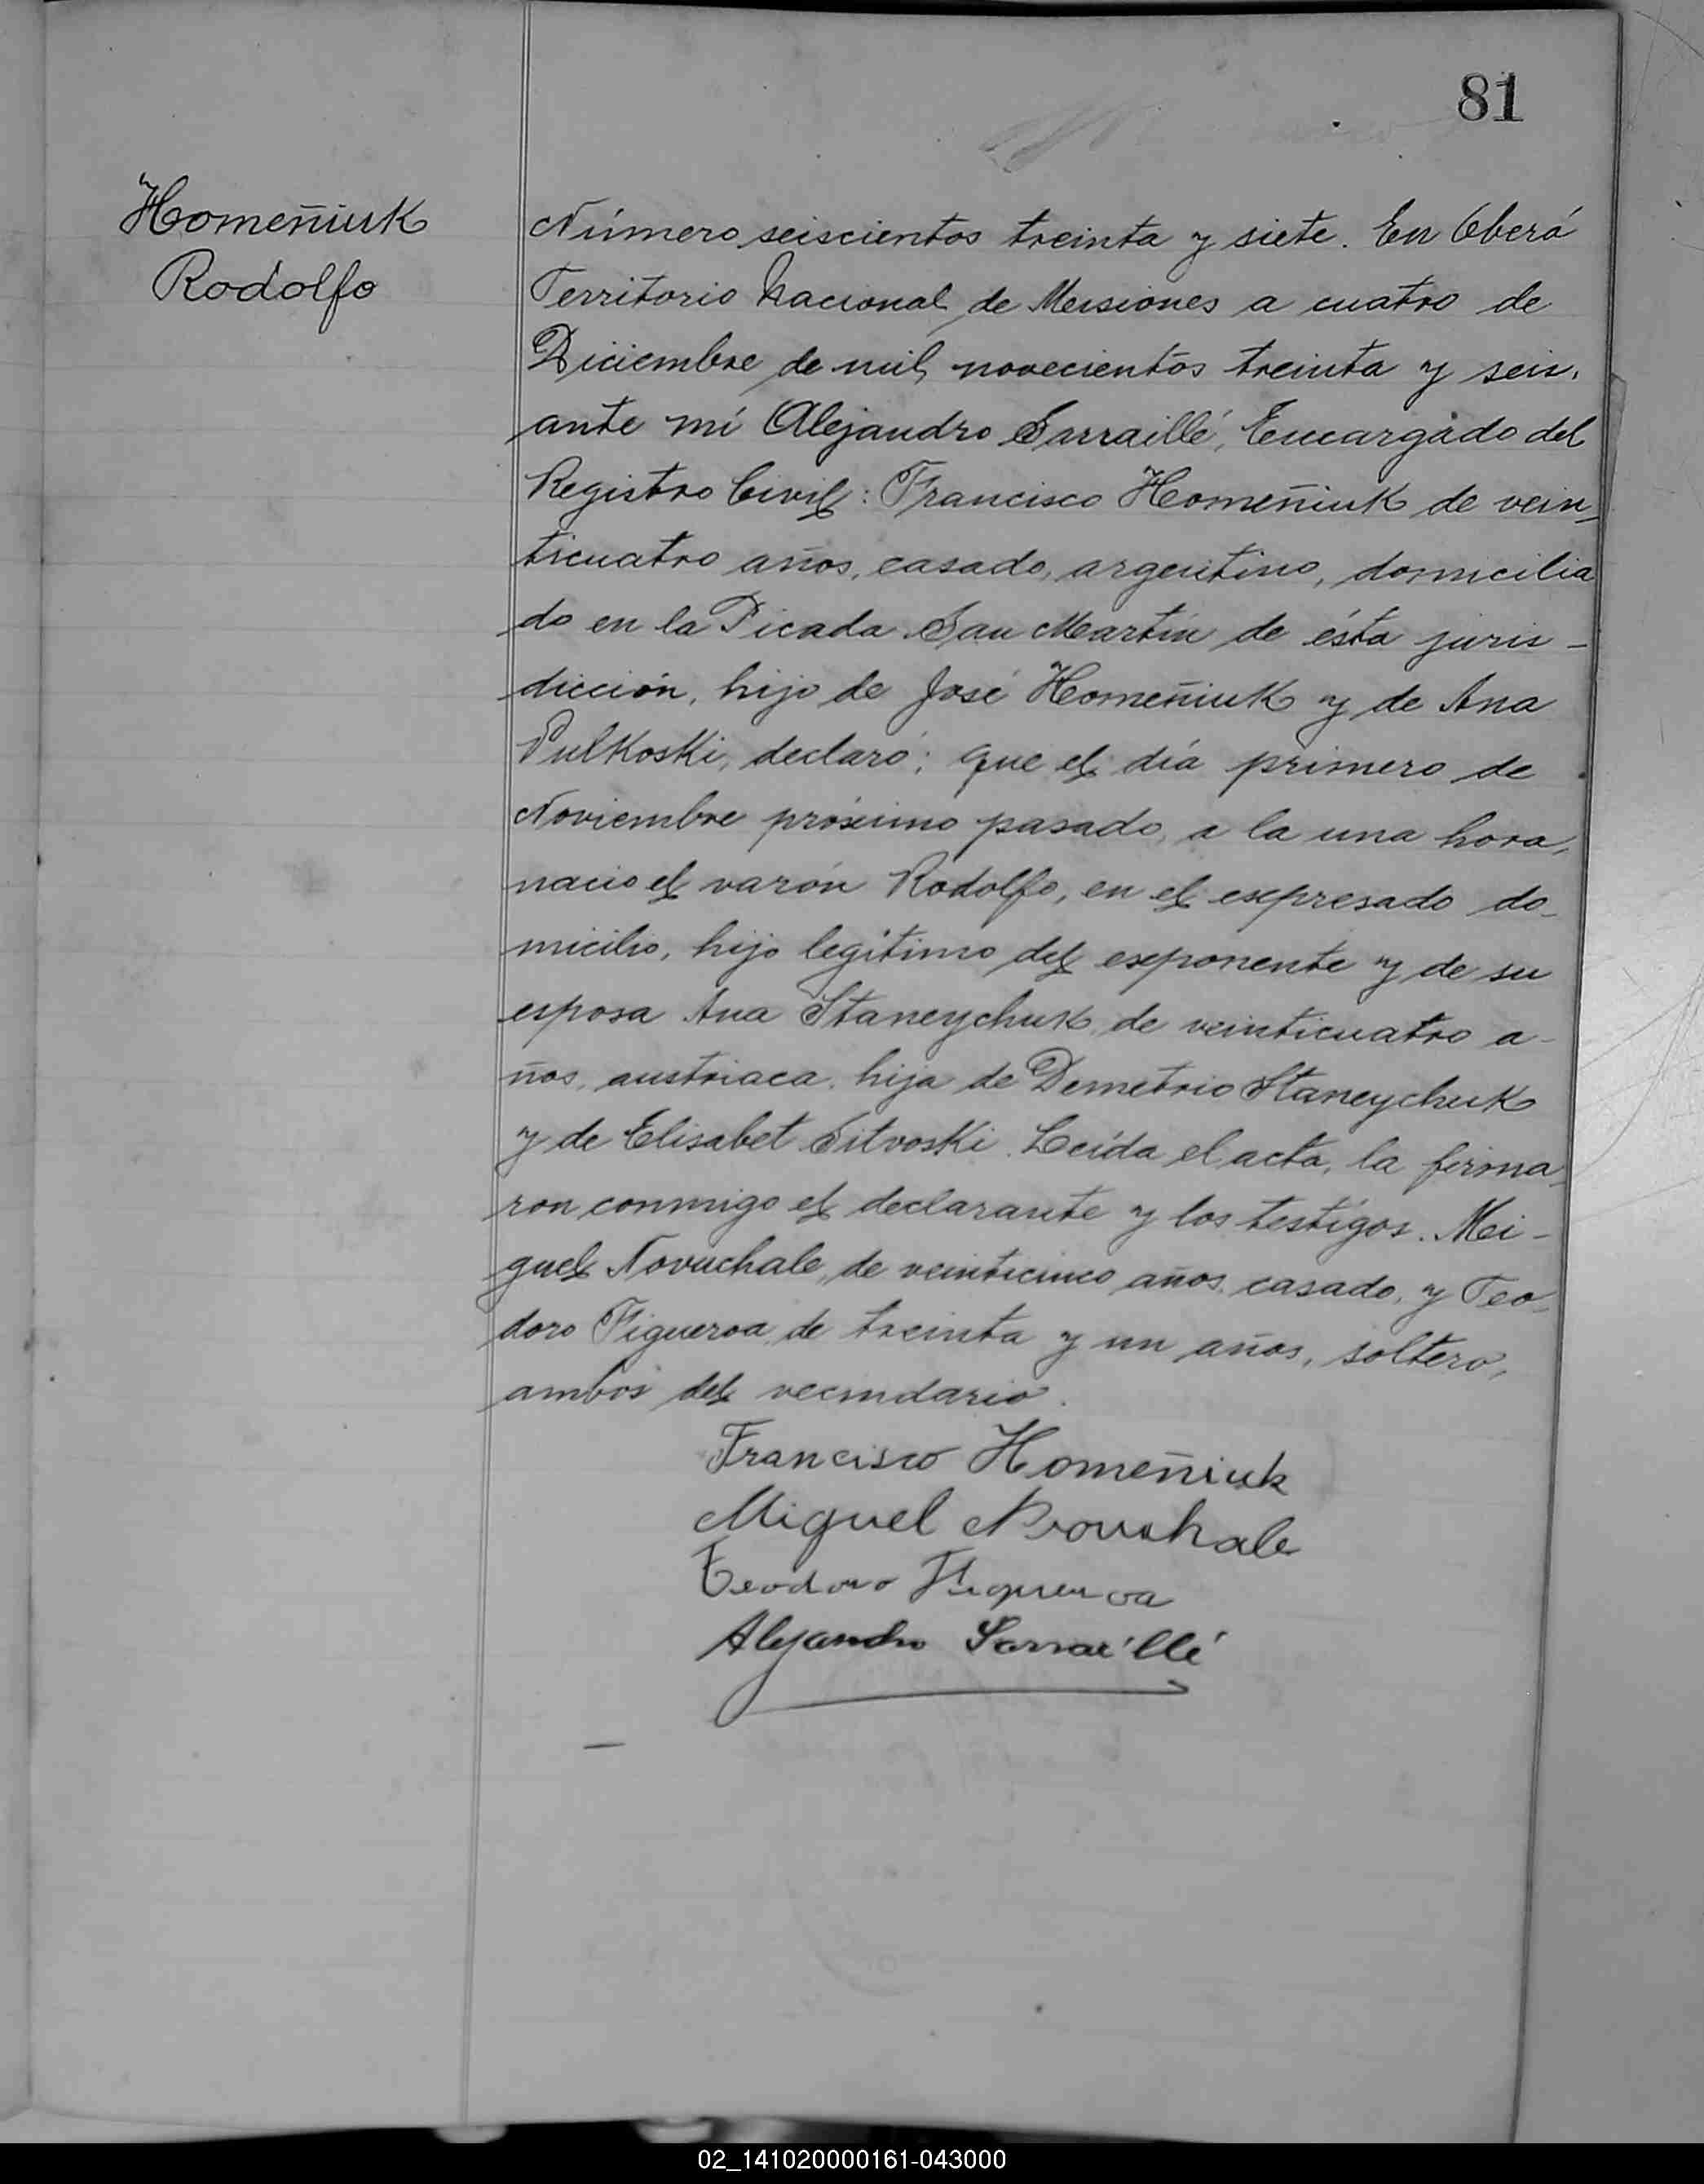 81
Homeñiuk
Rodolfo
Número seiscientos treinta y siete. En Oberá
Territorio Nacional de Misiones a cuatro de
Diciembre de mil novecientos treinta y seis,
ante mí Alejandro Sarraillé, Encargado del
Registro Civil: Francisco Homeñiuk de vein-
ticuatro años, casado, argentino, domicilia
do en la Picada San Martín de ésta juris-
dicción, hijo de José Homeñiuk y de Ana
Pulkoski, declaró; que el día primero de
Noviembre próximo pasado, a la una hora,
nacio el varón Rodolfo, en el expresado do-
micilio, hijo legítimo del exponente y de su
esposa Ana Staneychuk, de veinticuatro a-
ños, austriaca, hija de Demetrio Staneychuk
y de Elisabet Sitvoski. Leída el acta, la firma-
ron conmigo el declarante y los testigos. Mi-
guel Novuchale, de veinticinco años, casado, y Teo-
doro Figueroa, de treinta y un años, soltero,
ambos del vecindario.
Francisco Homeñiuk
Miguel
Teodoro Figueroa
Alejandro Sarraillé
02_141020000161-043000